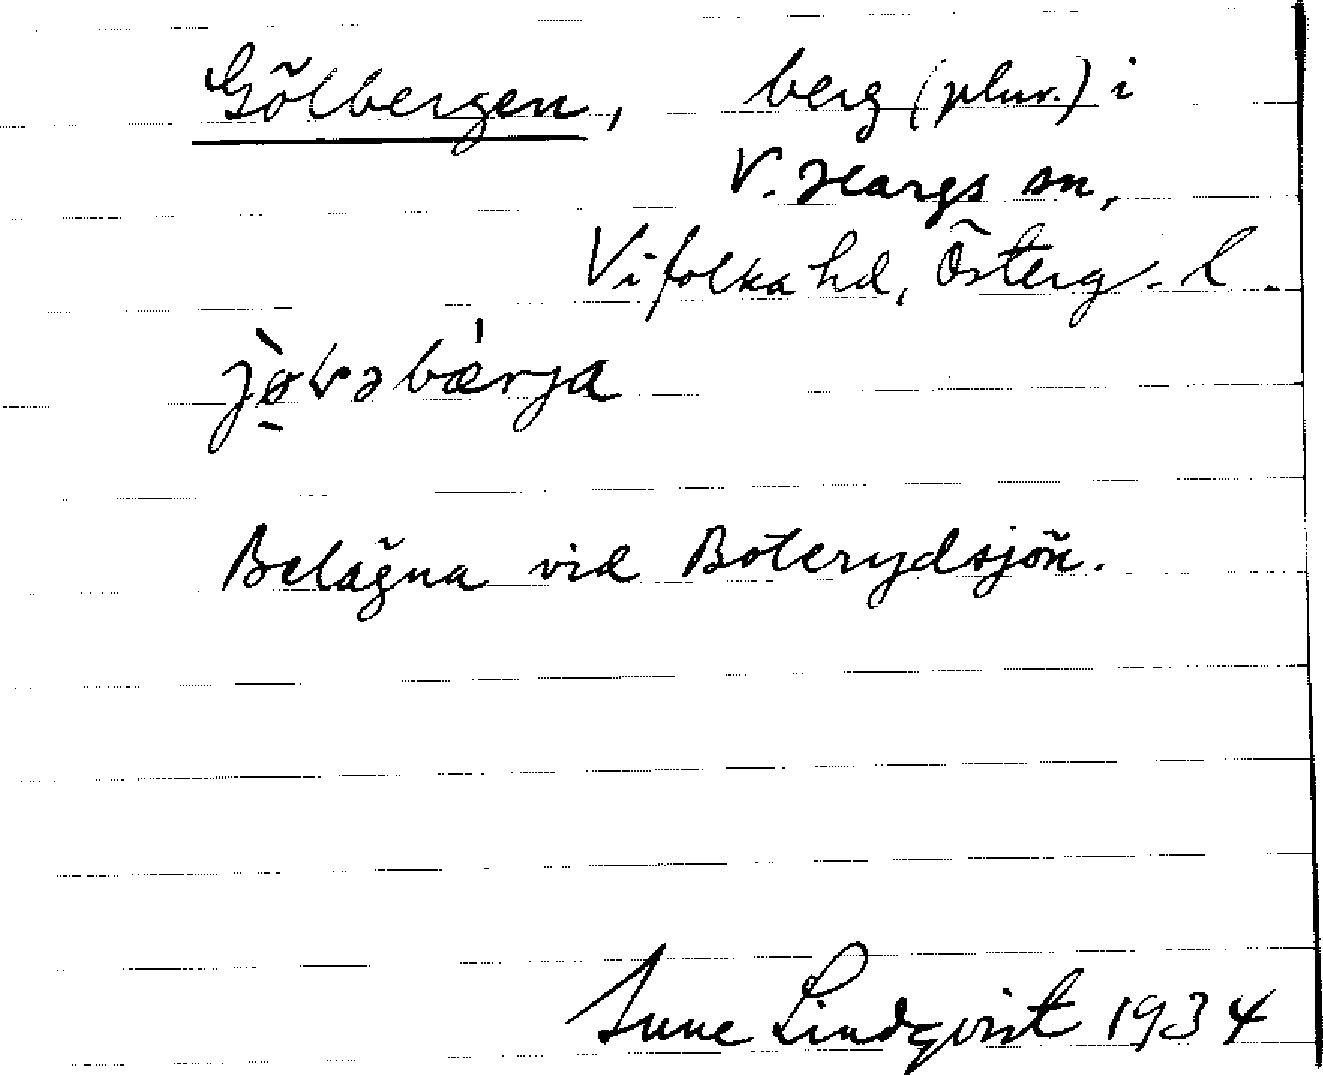 Gölbergen, berg (plur.) i
V. Hargs sn,
Vifolka hd, Österg. l.
Belägna vid Boterydsjön.
Sune Lindqvist 1934